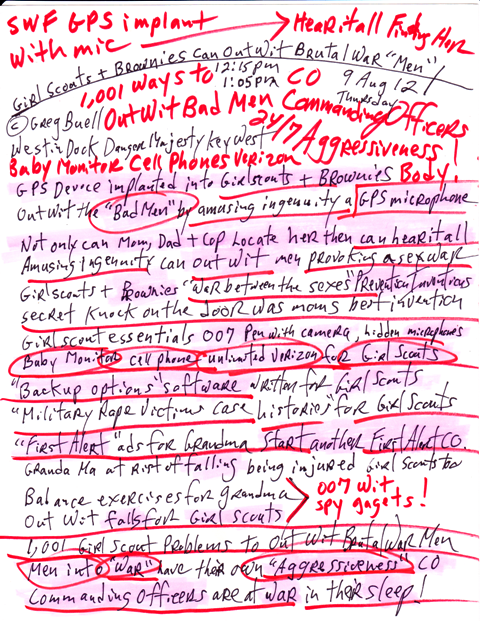 SWF GPS implant → Hearitall Finding Her
with mic
Girl Scouts + Brownies Can OutWit Brutal War "Men"
12:15pm
1:05pm
9 Aug 12
Thursday
1,001 Ways to CO
OutWit Bad Men Commanding Officers
© Greg Buell
24/7 Aggressiveness!
Westin Dock Danger Majesty Key West
Baby Monitor Cell Phones Verizon Body!
GPS Device implanted into Girlscouts + Brownies
Outwit the "Bad Men" by amusing ingenuity a GPS microphone
Not only can Mom, Dad + Cop Locate her then can hearitall
Amusing Ingenuity can outwit men provoking a sex war
Girlscouts + Brownies "War between the sexes" Prevention inventions
secret knock on the door was moms best invention
Girlscout essentials 007 Pen with camera, hidden microphones
Baby Monitor cell phone unlimited Verizon for Girl Scouts
"Backup options" software written for Girl Scouts
"Military Rape Victims case histories" for Girl Scouts
"First Alert" ads for Grandma Start another First Alert CO.
Granda Ma at Rist of falling being injured Girl Scouts too
Balance exercises for grandma
Out Wit falls for Girl Scouts
007 Wit
spy gagets!
1,001 Girl Scout Problems to Out Wit Brutal War Men
Men into "War" have their own "Aggressiveness" CO
Commanding Officers are at war in their sleep!